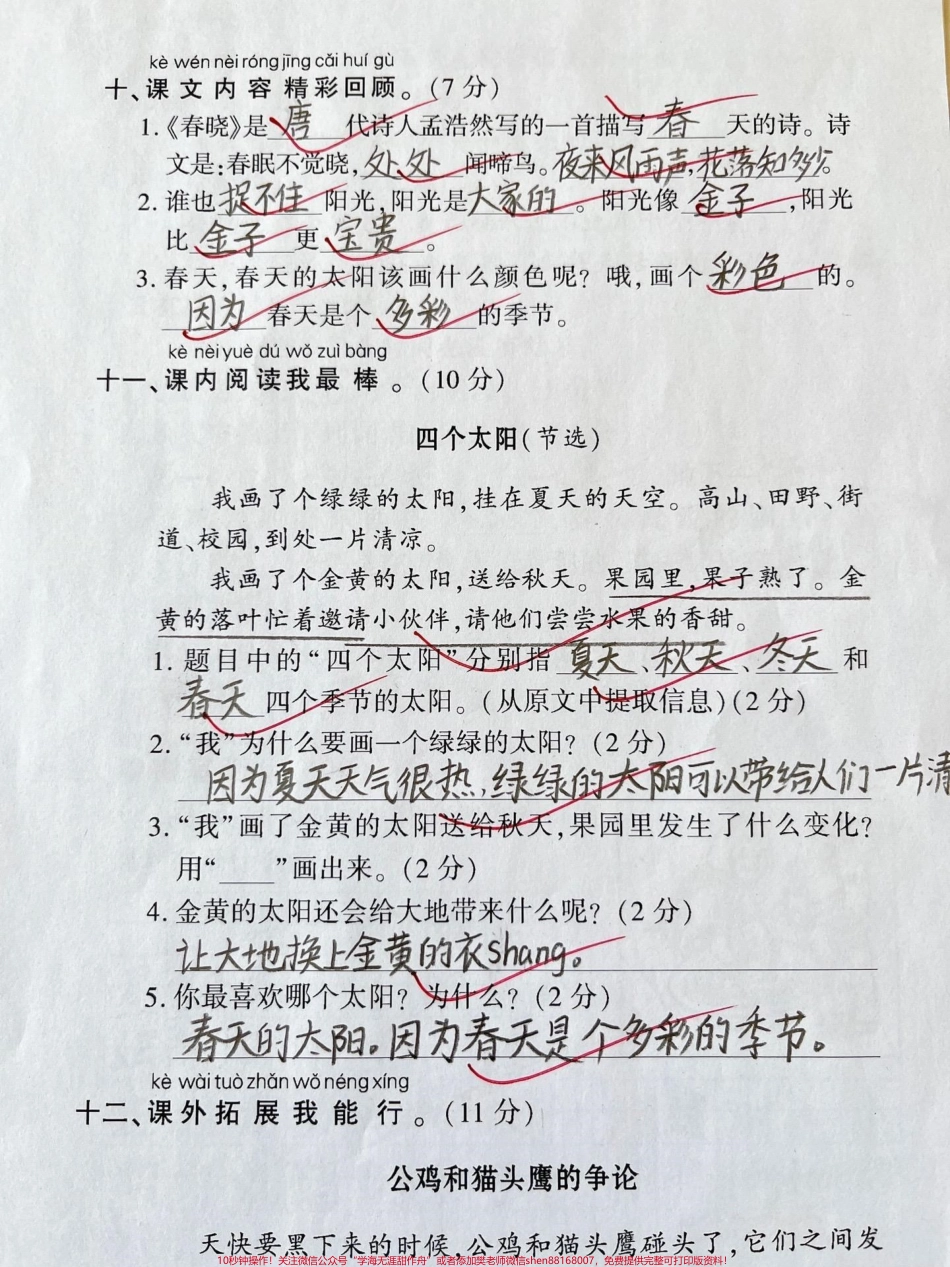 kè wén nèi róng jīng cǎi huí gù
十、课文内容精彩回顾。(7分)
1.《春晓》是 唐 代诗人孟浩然写的一首描写 春 天的诗。诗
文是:春眠不觉晓,处处 闻啼鸟。夜来风雨声,花落知多少。
2. 谁也 捉不住 阳光,阳光是 大家的 。阳光像 金子 ,阳光
比 金子 更 宝贵 。
3. 春天,春天的太阳该画什么颜色呢? 哦,画个 彩色 的。
因为 春天是个 多彩 的季节。
kè nèi yuè dú wǒ zuì bàng
十一、课内阅读我最棒。(10分)
四个太阳(节选)
我画了个绿绿的太阳,挂在夏天的天空。高山、田野、街
道、校园,到处一片清凉。
我画了个金黄的太阳,送给秋天。果园里,果子熟了。金
黄的落叶忙着邀请小伙伴,请他们尝尝水果的香甜。
1. 题目中的“四个太阳”分别指 夏天 、 秋天 、 冬天 和
春天 四个季节的太阳。(从原文中提取信息)(2分)
2. “我”为什么要画一个绿绿的太阳? (2分)
因为夏天天气很热,绿绿的太阳可以带给人们一片清
3. “我”画了金黄的太阳送给秋天,果园里发生了什么变化?
用“____”画出来。(2分)
4. 金黄的太阳还会给大地带来什么呢? (2分)
让大地换上金黄的衣shang。
5. 你最喜欢哪个太阳? 为什么? (2分)
春天的太阳。因为春天是个多彩的季节。
kè wài tuò zhǎn wǒ néng xíng
十二、课外拓展我能行。(11分)
公鸡和猫头鹰的争论
天快要黑下来的时候,公鸡和猫头鹰碰头了,它们之间发
10秒钟操作!关注微信公众号“学海无涯甜作舟”或者添加樊老师微信shen88168007,免费提供完整可打印版资料!